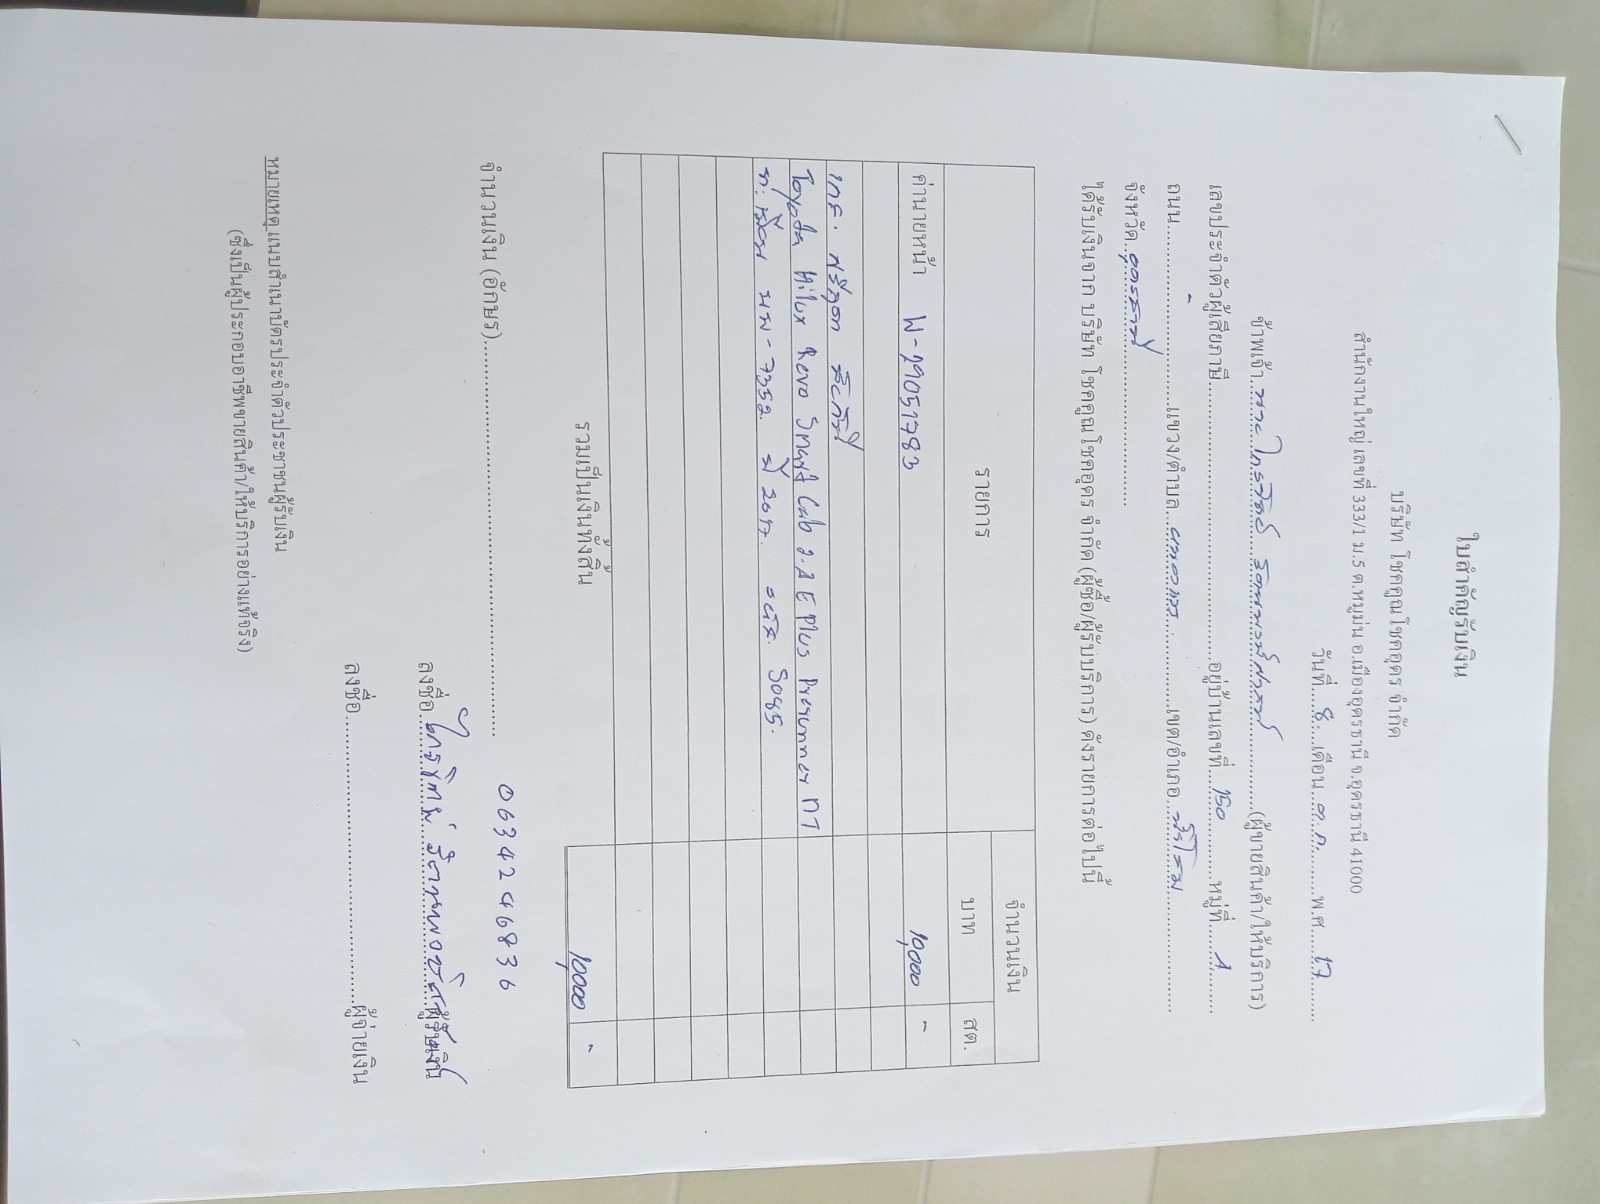 ใบสำคัญรับเงิน
บริษัท โชคคูณโชคอุดร จำกัด
สำนักงานใหญ่ เลขที่ 333/1 ม.5 ต.หมูม่น อ.เมืองอุดรธานี จ.อุดรธานี 41000
วันที่.....8.....เดือน.....ต.ค..........พ.ศ.....67..........
ข้าพเจ้า..นาย..........(ผู้ขายสินค้า/ให้บริการ)
เลขประจำตัวผู้เสียภาษี..............................อยู่บ้านเลขที่...150..........หมู่ที่.....1..........
ถนน..........-..........แขวง/ตำบล..........เขต/อำเภอ..........
จังหวัด..อุดรธานี..............................
ได้รับเงินจาก บริษัท โชคคูณโชคอุดร จำกัด (ผู้ซื้อ/ผู้รับบริการ) ดังรายการต่อไปนี้
รายการ จำนวนเงิน
บาท สต.
ค่านายหน้า W-29051783 10,000 -
Toyota Hilux Revo Smart Cab 2.4 E Plus Prerunner MT
รวมเป็นเงินทั้งสิ้น 10,000 -
จำนวนเงิน (อักษร)..................................................
0634246836
ลงชื่อ..............................ผู้รับเงิน
ลงชื่อ..............................ผู้จ่ายเงิน
หมายเหตุ แนบสำเนาบัตรประจำตัวประชาชนผู้รับเงิน
(ซึ่งเป็นผู้ประกอบอาชีพขายสินค้า/ให้บริการอย่างแท้จริง)